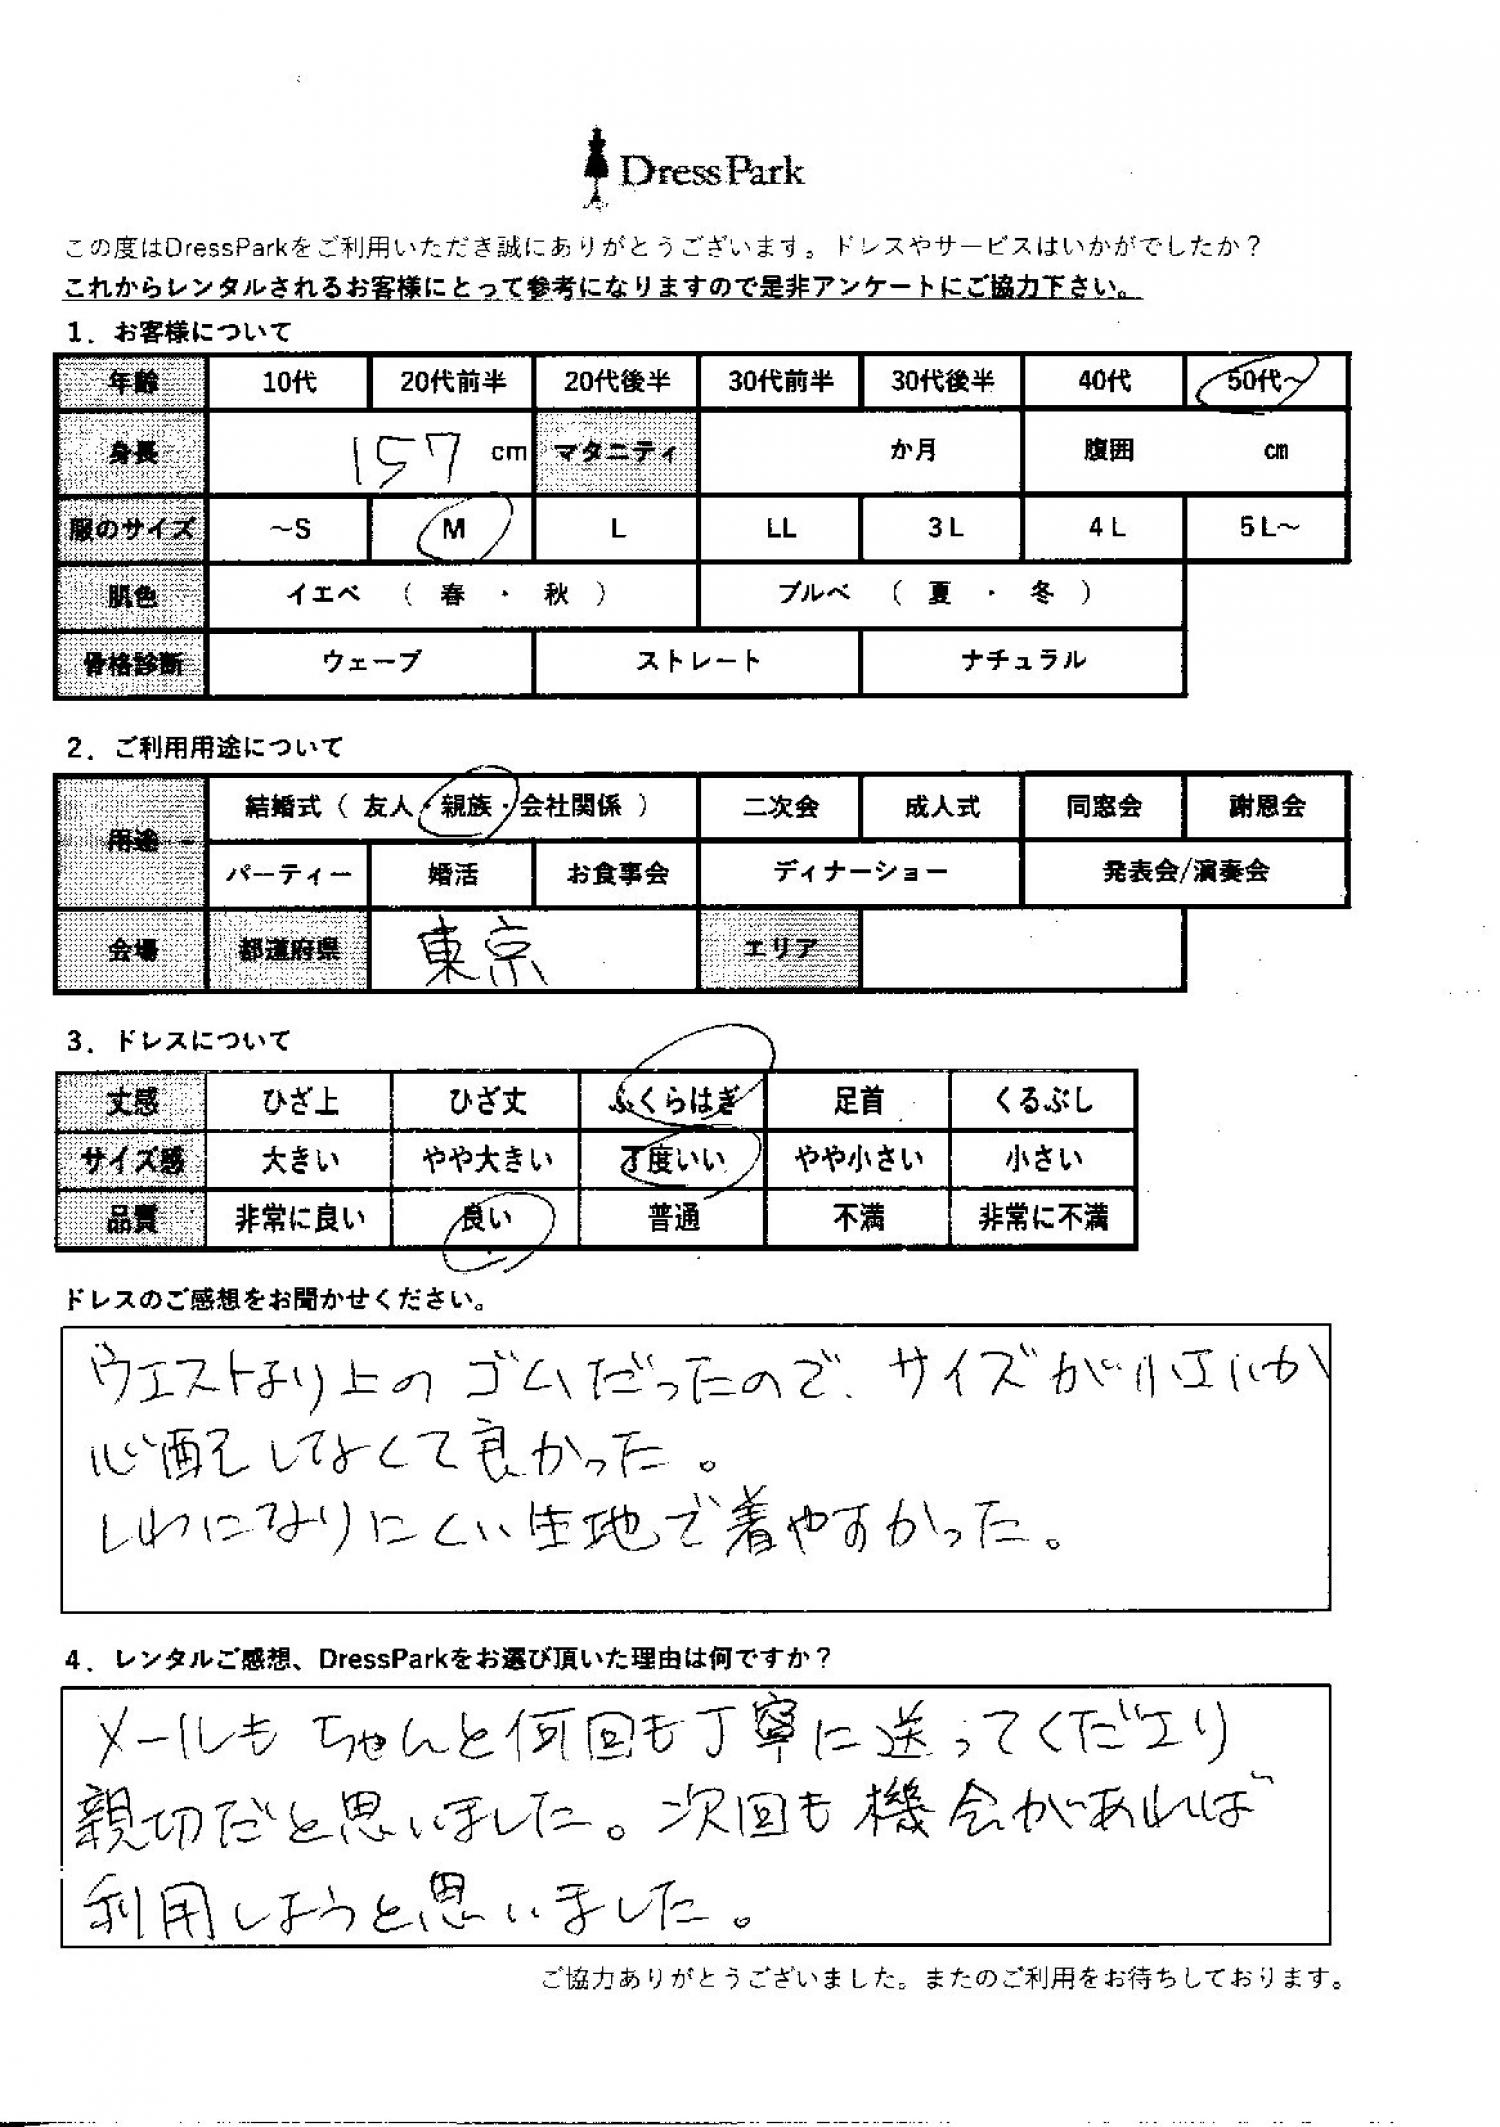 DressPark
この度はDressParkをご利用いただき誠にありがとうございます。ドレスやサービスはいかがでしたか？
これからレンタルされるお客様にとって参考になりますので是非アンケートにご協力下さい。
1．お客様について
年齢 10代 20代前半 20代後半 30代前半 30代後半 40代 50代～
身長 157 cm マタニティ か月 腹囲 cm
服のサイズ ～S M L LL 3L 4L 5L～
肌色 イエベ （ 春 ・ 秋 ） ブルベ （ 夏 ・ 冬 ）
骨格診断 ウェーブ ストレート ナチュラル
2．ご利用用途について
用途 結婚式（ 友人・親族・会社関係 ） 二次会 成人式 同窓会 謝恩会
パーティー 婚活 お食事会 ディナーショー 発表会/演奏会
会場 都道府県 東京 エリア
3．ドレスについて
丈感 ひざ上 ひざ丈 ふくらはぎ 足首 くるぶし
サイズ感 大きい やや大きい 丁度いい やや小さい 小さい
品質 非常に良い 良い 普通 不満 非常に不満
ドレスのご感想をお聞かせください。
ウエストより上のゴムだったので、サイズが小さいか
心配しなくて良かった。
しわになりにくい生地で着やすかった。
4．レンタルご感想、DressParkをお選び頂いた理由は何ですか？
メールもちゃんと何回も丁寧に送ってくださり
親切だと思いました。次回も機会があれば
利用しようと思いました。
ご協力ありがとうございました。またのご利用をお待ちしております。